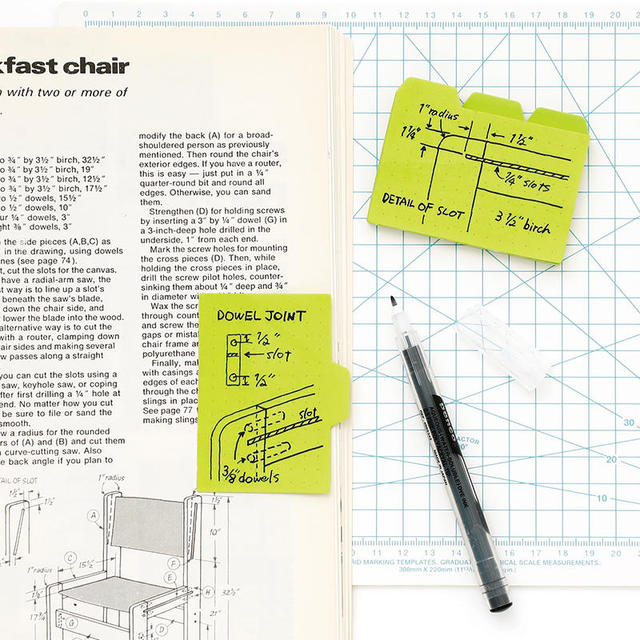 kfast chair
with two or more of
to ¾" by 3½" birch, 32½"
to ¾" by 3½" birch, 19"
to ¾" by 3½" birch, 12½"
to ¾" by 3½" birch, 17½"
to ½" dowels, 15½"
to ½" dowels, 10"
our ¼" dowels, 3"
ight ⅜" dowels, 3"
the side pieces (A,B,C) as
in the drawing, using dowels
nes (see page 74).
, cut the slots for the canvas.
have a radial-arm saw, the
st way is to line up a slot's
beneath the saw's blade,
down the chair side, and
lower the blade into the wood.
alternative way is to cut the
with a router, clamping down
air sides and making several
w passes along a straight
you can cut the slots using a
saw, keyhole saw, or coping
after first drilling a ¼" hole at
end. No matter how you cut
be sure to file or sand the
smooth.
w a radius for the rounded
rs of (A) and (B) and cut them
a curve-cutting saw. Also
e back angle if you plan to
modify the back (A) for a broad-
shouldered person as previously
mentioned. Then round the chair's
exterior edges. If you have a router,
this is easy — just put in a ¼"
quarter-round bit and round all
edges. Otherwise, you can sand
them.
Strengthen (D) for holding screws
by inserting a 3" by ¼" dowel (G) in
a 3-inch-deep hole drilled in the
underside, 1" from each end.
Mark the screw holes for mounting
the cross pieces (D). Then, while
holding the cross pieces in place,
drill the screw pilot holes, counter-
sinking them about ¼" deep and ¾"
in diameter
Wax the scr
through count
and screw the
gaps with mat
chair frame an
polyurethane
Finally, mak
with casings a
edges of each
through the ch
slings in place
See page 77
making slings
DOWEL JOINT
½"
slot
½"
slot
3/8" dowels
1" radius
1¼"
1½"
¼" slots
DETAIL OF SLOT
3½" birch
AIL OF SLOT
1½"
1" radius
1½"
A
10½"
F
E
C
15½"
1" radius
H
32½"
21"
G
B
10 11 12 13 14 15 16 17 18 19 20
30°
10
ACTOR
RD MARKING TEMPLATES. GRADUAT
CAL SCALE MEASUREMENTS.